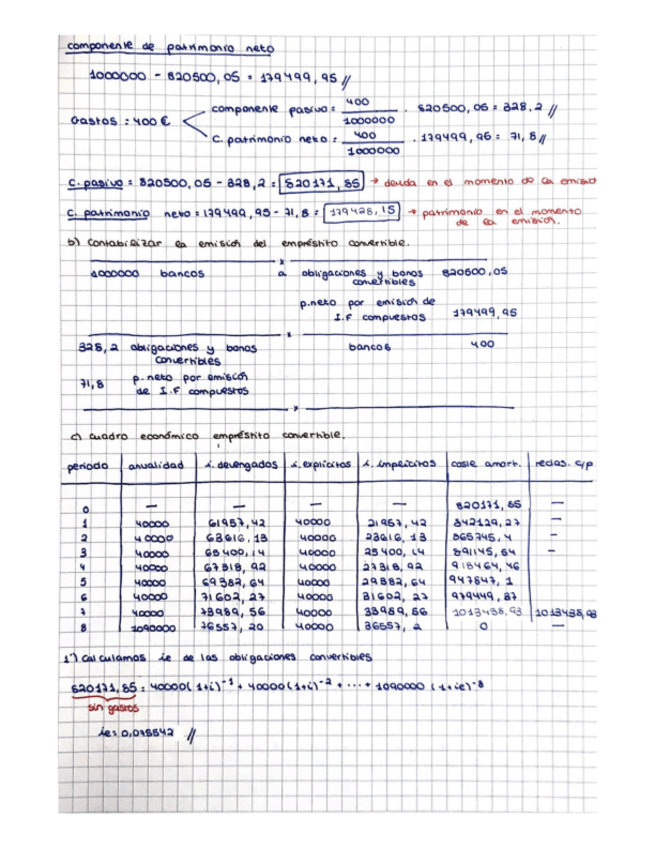 componente de patrimonio neto
1000000 - 820500,05 = 179499,95 //
Gastos : 400 €
componente pasivo = 400/1000000 . 820500,05 = 328,2 //
C. patrimonio neto = 400/1000000 . 179499,95 = 71,8 //
C. pasivo = 820500,05 - 328,2 = 820171,85 → deuda en el momento de la emisió
C. patrimonio neto = 179499,95 - 71,8 = 179428,15 → patrimonio en el momento
de la emisión.
b) Contabilizar la emisión del empréstito convertible.
x
1000000 bancos a obligaciones y bonos 820500,05
convertibles
p.neto por emisión de
I.F compuestos 179499,95
x
328,2 obligaciones y bonos bancos 400
convertibles
71,8 p. neto por emisión
de I.F compuestos
x
c) cuadro económico empréstito convertible.
periodo anualidad i. devengados i. explícitos i. implícitos coste amort. reclas. c/p
0 — — — — 820171,85 —
1 40000 61957,42 40000 21957,42 842129,27 —
2 40000 63616,13 40000 23616,13 865745,4 —
3 40000 65400,14 40000 25400,14 891145,54 —
4 40000 67318,92 40000 27318,92 918464,46
5 40000 69382,64 40000 29382,64 947847,1
6 40000 71602,27 40000 31602,27 979449,37
7 40000 73989,56 40000 33989,56 1013438,93 1013438,93
8 1090000 76557,20 40000 36557,2 0 —
1º) Calculamos ie de las obligaciones convertibles
820171,85 = 40000(1+i)⁻¹ + 40000(1+i)⁻² + ... + 1090000 (1+ie)⁻⁸
sin gastos
ie = 0,075542 //